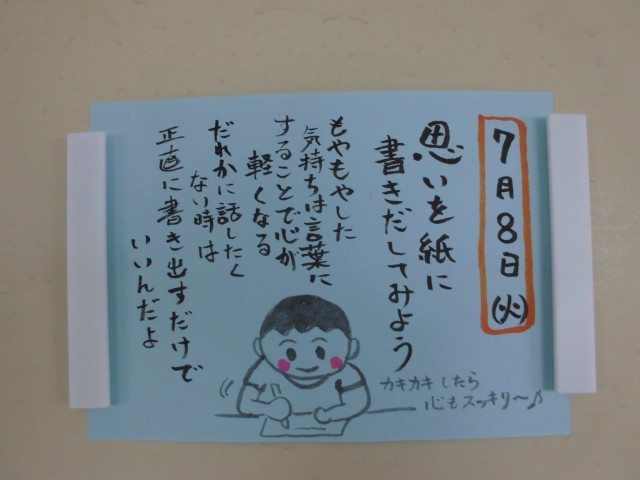 7月8日(火)
思いを紙に
書きだしてみよう
もやもやした
気持ちは言葉に
することで心が
軽くなる
だれかに話したく
ない時は
正直に書き出すだけで
いいんだよ
カキカキしたら
心もスッキリ〜♪